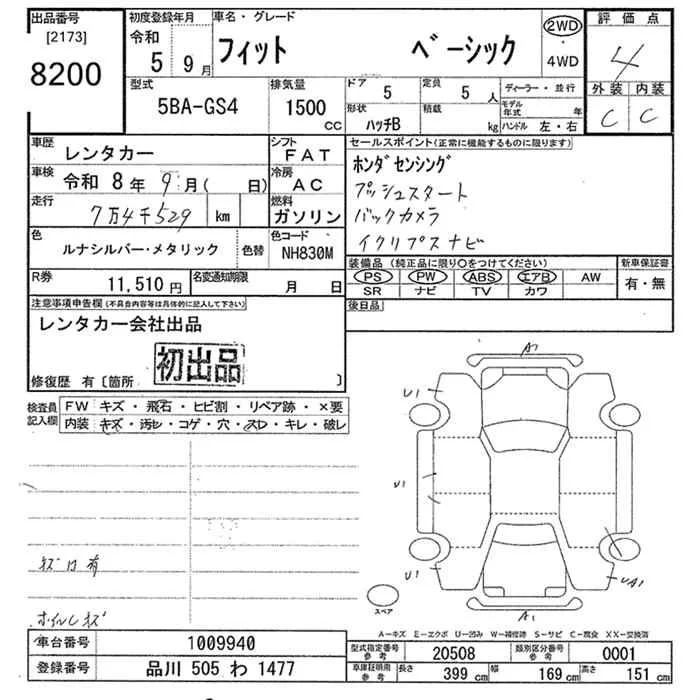 出品番号 初度登録年月 車名・グレード 2WD 評価点
[2173] 令和
8200 5 9月 フィット ベーシック 4WD 4
型式 排気量 ドア 定員 ディーラー・並行 外装 内装
5BA-GS4 1500 5 5人 モデル年式 年 C C
CC 形状 ハッチB 積載 kg ハンドル 左・右
車歴 レンタカー シフト FAT セールスポイント(正常に機能するものに限ります)
車検 令和 8年 9月( 日) 冷房 AC ホンダセンシング
プッシュスタート
走行 7万4千529 km 燃料 ガソリン バックカメラ
イクリプスナビ
色 ルナシルバー・メタリック 色替 色コード NH830M
装備品(純正品に限り○をつけてください) 新車保証書
R券 11,510円 名変通知期限 月 日 PS PW ABS エアB AW 有・無
SR ナビ TV カワ
注意事項申告欄(不具合内容等は具体的に記入して下さい) 後日品
レンタカー会社出品
初出品
修復歴 有〔箇所 〕
検査員記入欄 FW キズ・飛石・ヒビ割・リペア跡・×要
内装 キズ・汚レ・コゲ・穴・スレ・キレ・破レ
A1
U1
U1
U1
UA1
A1
キズ口有
ホイルキズ
スペア
A-キズ E-エクボ U-凹み W-補修跡 S-サビ C-腐食 XX-交換済
車台番号 1009940 型式指定番号参考 20508 類別区分番号参考 0001
登録番号 品川 505 わ 1477 車庫証明用参考 長さ 399 cm 幅 169 cm 高さ 151 cm